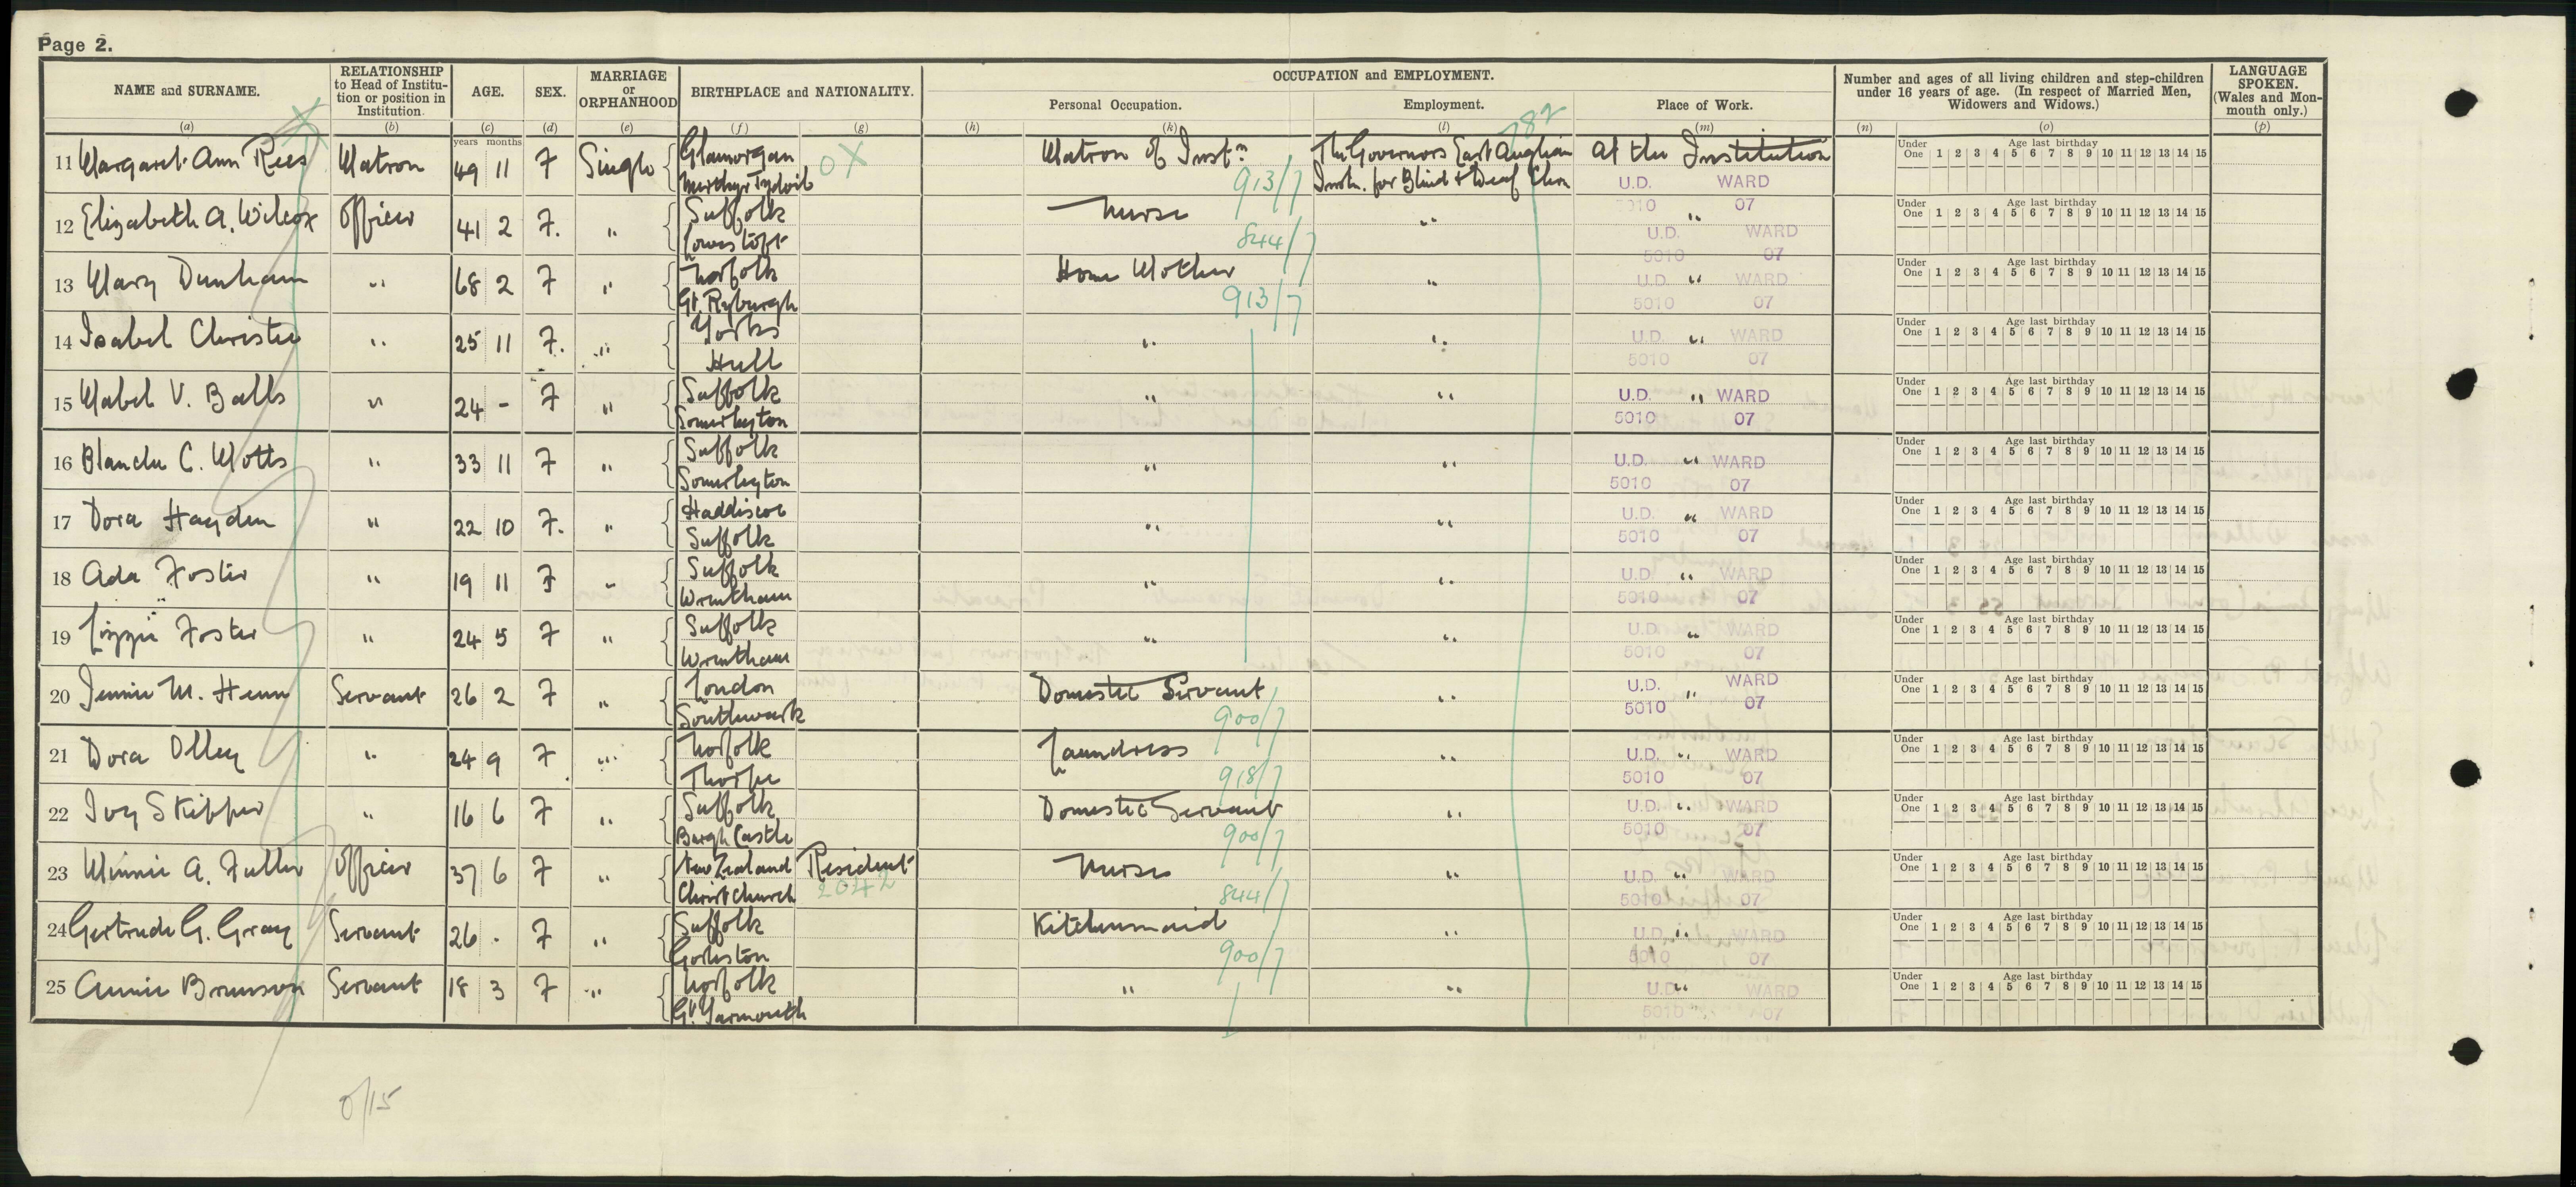 Page 2.
NAME and SURNAME. RELATIONSHIP to Head of Institution or position in Institution. AGE. SEX. MARRIAGE or ORPHANHOOD BIRTHPLACE and NATIONALITY. OCCUPATION and EMPLOYMENT. Number and ages of all living children and step-children under 16 years of age. (In respect of Married Men, Widowers and Widows.) LANGUAGE SPOKEN. (Wales and Monmouth only.)
Personal Occupation. Employment. Place of Work.
(a) (b) (c) (d) (e) (f) (g) (h) (k) (l) (m) (n) (o) (p)
years months
782
11 Margaret Ann Rees Matron 49 11 F Single Glamorgan OX Matron of Instn The Governors East Anglian At the Institution Under One 1 2 3 4 5 6 7 8 9 10 11 12 13 14 15 Age last birthday
Merthyr Tydvil 913/7 Instn. for Blind & Deaf Chn U.D. WARD
5010 07
12 Elizabeth A. Wilcox Officer 41 2 F. " Suffolk Nurse " " Under One 1 2 3 4 5 6 7 8 9 10 11 12 13 14 15 Age last birthday
Lowestoft 844/7 U.D. WARD
5010 07
13 Mary Dunham " 68 2 F " Norfolk Home Mother " " Under One 1 2 3 4 5 6 7 8 9 10 11 12 13 14 15 Age last birthday
Gt. Ryburgh 913/7 U.D. WARD
5010 07
14 Isabel Christie " 25 11 F. " Yorks " " " Under One 1 2 3 4 5 6 7 8 9 10 11 12 13 14 15 Age last birthday
Hull U.D. WARD
5010 07
15 Mabel V. Balls " 24 - F " Suffolk " " " Under One 1 2 3 4 5 6 7 8 9 10 11 12 13 14 15 Age last birthday
Somerleyton U.D. WARD
5010 07
16 Blanche C. Motts " 33 11 F " Suffolk " " " Under One 1 2 3 4 5 6 7 8 9 10 11 12 13 14 15 Age last birthday
Somerleyton U.D. WARD
5010 07
17 Dora Hayden " 22 10 F. " Haddiscoe " " " Under One 1 2 3 4 5 6 7 8 9 10 11 12 13 14 15 Age last birthday
Suffolk U.D. WARD
5010 07
18 Ada Foster " 19 11 F " Suffolk " " " Under One 1 2 3 4 5 6 7 8 9 10 11 12 13 14 15 Age last birthday
Wrentham U.D. WARD
5010 07
19 Lizzie Foster " 24 5 F " Suffolk " " " Under One 1 2 3 4 5 6 7 8 9 10 11 12 13 14 15 Age last birthday
Wrentham U.D. WARD
5010 07
20 Jennie M. Henn Servant 26 2 F " London Domestic Servant " " Under One 1 2 3 4 5 6 7 8 9 10 11 12 13 14 15 Age last birthday
Southwark 900/7 U.D. WARD
5010 07
21 Dora Olley " 24 9 F " Norfolk Laundress " " Under One 1 2 3 4 5 6 7 8 9 10 11 12 13 14 15 Age last birthday
Thorpe 918/7 U.D. WARD
5010 07
22 Ivy Skipper " 16 6 F " Suffolk Domestic Servant " " Under One 1 2 3 4 5 6 7 8 9 10 11 12 13 14 15 Age last birthday
Burgh Castle 900/7 U.D. WARD
5010 07
23 Minnie A. Fuller Officer 37 6 F " New Zealand Resident Nurse " " Under One 1 2 3 4 5 6 7 8 9 10 11 12 13 14 15 Age last birthday
Christchurch 2042 844/7 U.D. WARD
5010 07
24 Gertrude G. Gray Servant 26 . F " Suffolk Kitchenmaid " " Under One 1 2 3 4 5 6 7 8 9 10 11 12 13 14 15 Age last birthday
Gorleston 900/7 U.D. WARD
5010 07
25 Annie Brunson Servant 18 3 F " Norfolk " " " Under One 1 2 3 4 5 6 7 8 9 10 11 12 13 14 15 Age last birthday
Gt. Yarmouth U.D. WARD
5010 07
0/15